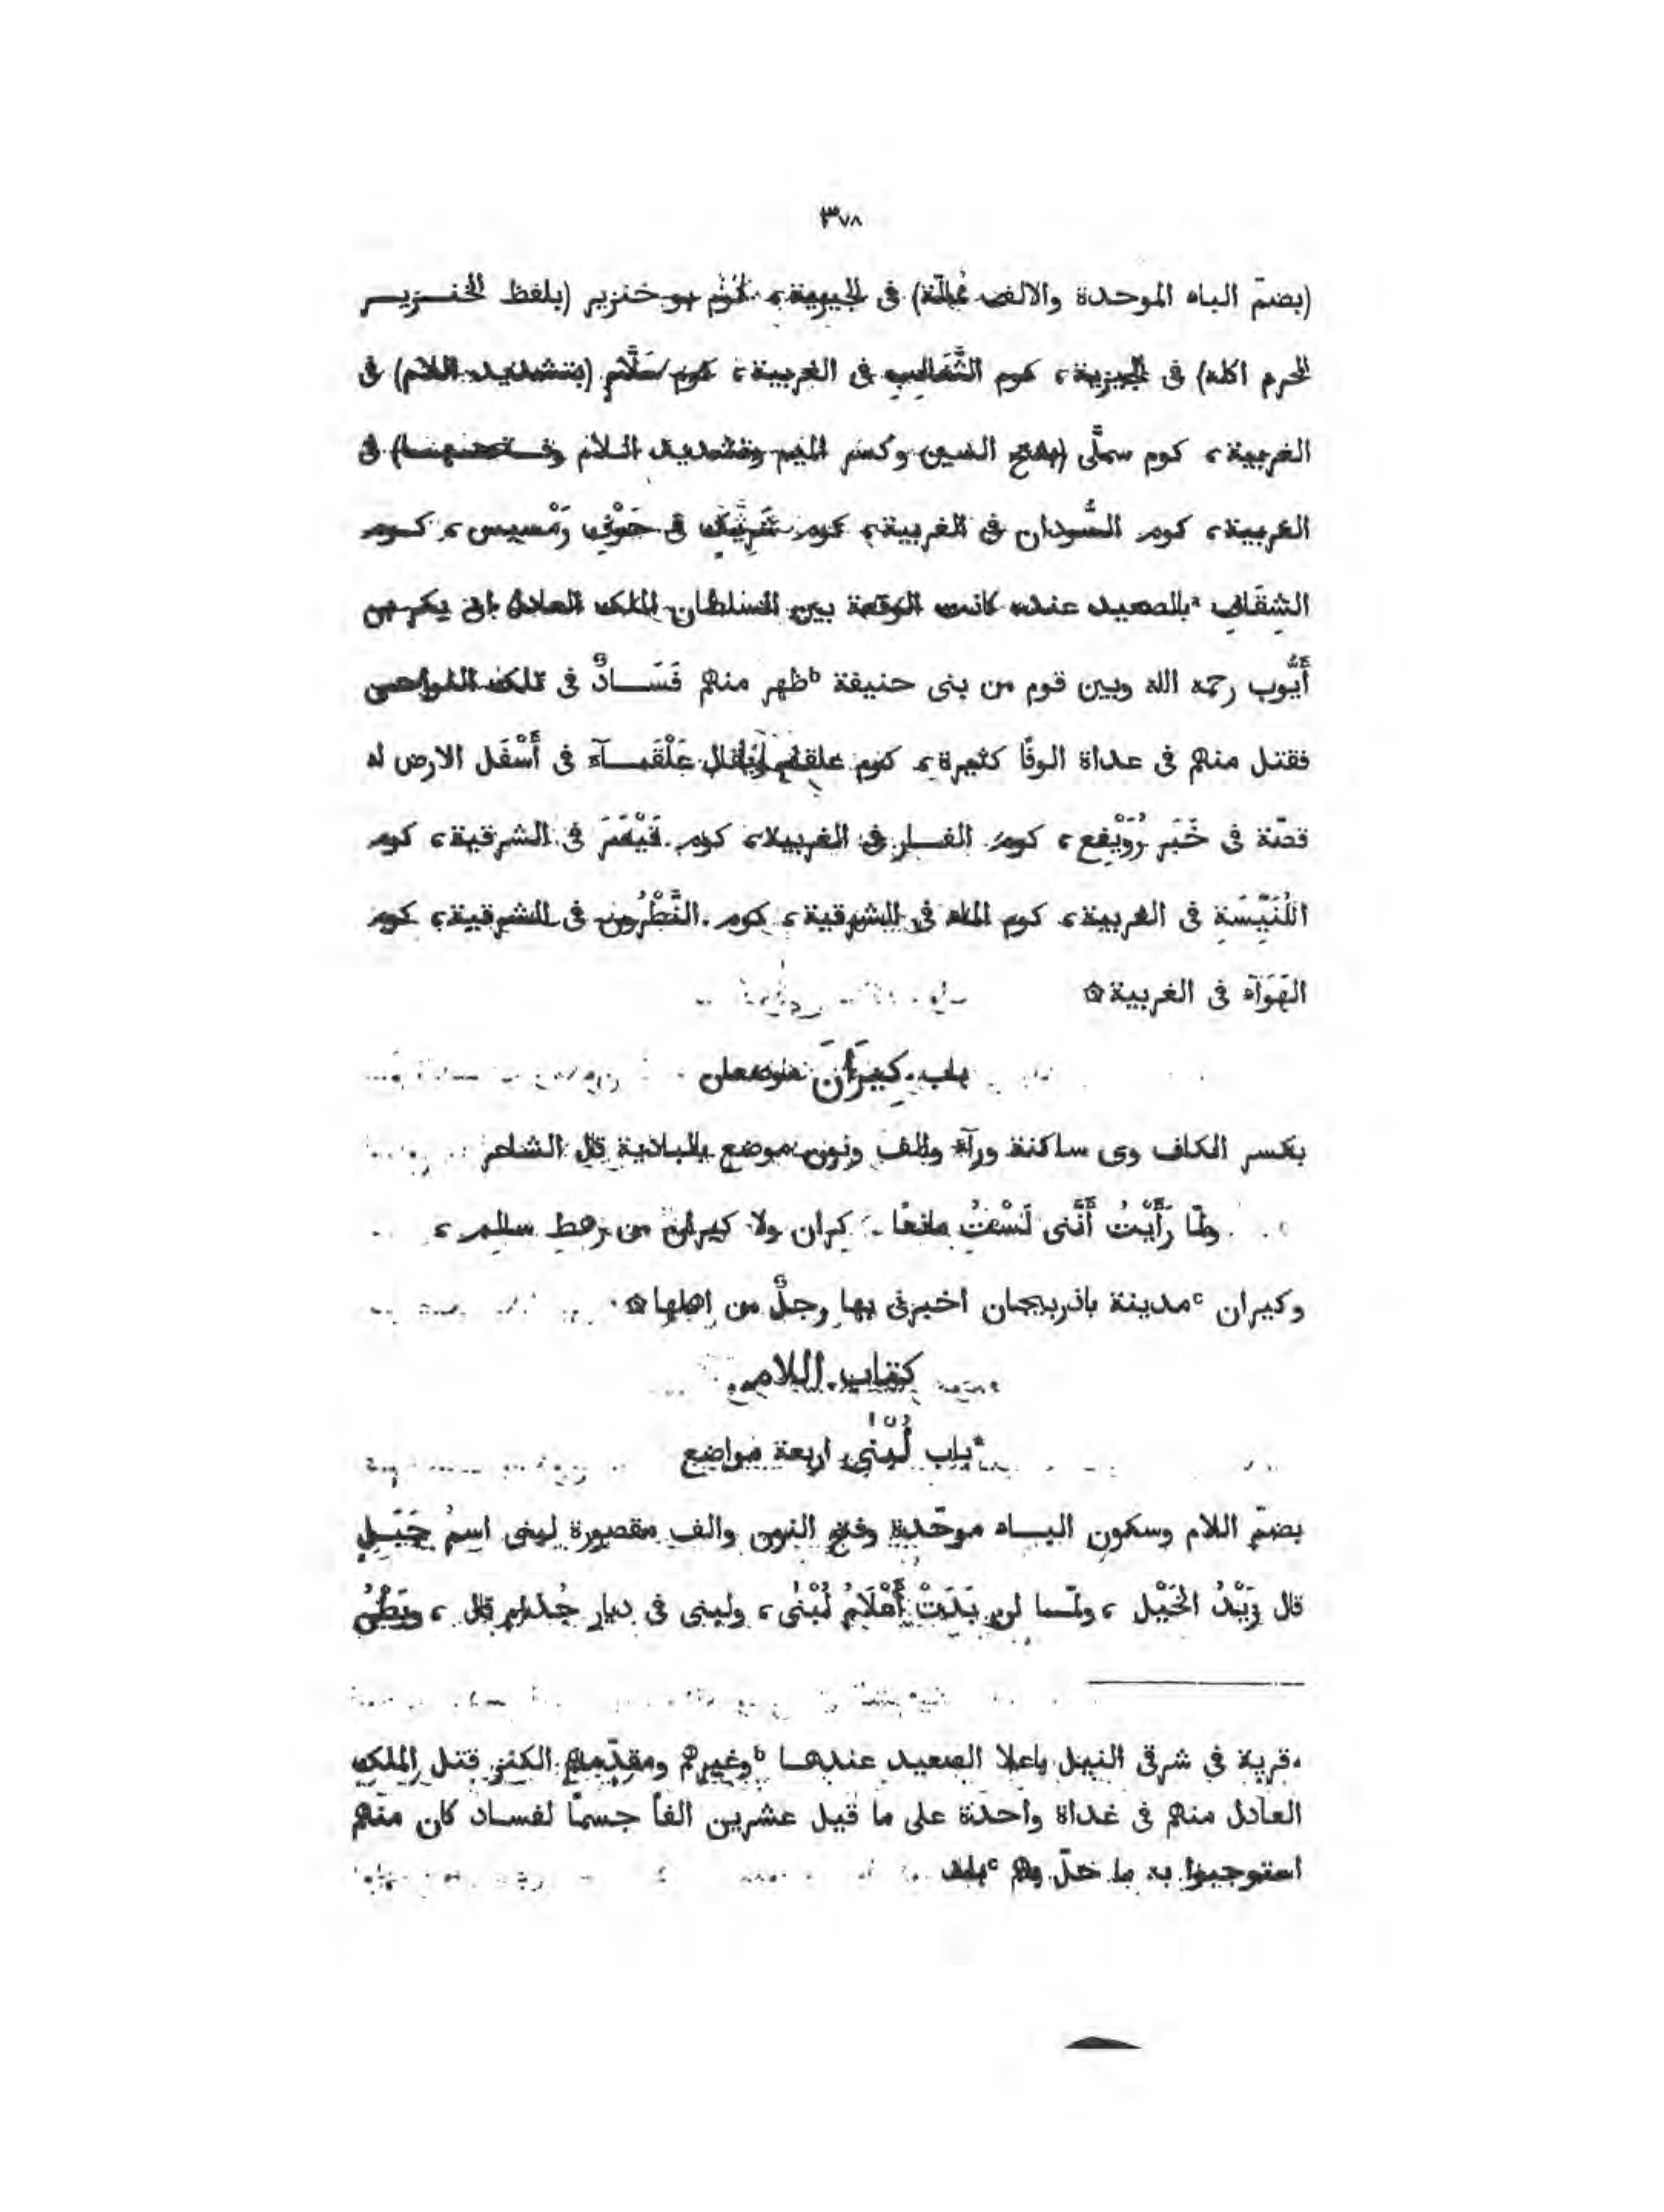 ٣٧٨
(بضمّ الباء الموحدة والالف مُمالة) فى الجيزية، كُوم بو خنزير (بلفظ الخنزير
المحرم اكله) فى الجيزية، كوم الثَّعَالِبِ فى الغربية، كوم سَلَّامٍ (بتشديد اللام) فى
الغربية، كوم سملَّى (بفتح السين وكسر الميم وتشديد اللام وفتحها) فى
الغربية، كوم السُّودان فى الغربية، كوم شَرِيكٍ فى حَوْفِ رَمْسِيس، كوم
الشِقَافِ aبالصعيد عنده كانت الوقعة بين السلطان الملك العادل ابى بكر بن
أَيُّوب رحمه الله وبين قوم من بنى حنيفة bظهر منهم فَسَادٌ فى تلك النواحى
فقتل منهم فى غداة الوفًا كثيرة، كوم علقام ويُقال عَلْقَمَآء فى أَسْفَل الارض له
قصّة فى خَبَر رُوَيْفِع، كوم الفار فى الغربية، كوم قَيْصَرَ فى الشرقية، كوم
اللُنَيِّسَةِ فى الغربية، كوم الماء فى الشرقية، كوم النَّطْرُون فى الشرقية، كوم
الهَوَآء فى الغربية ۞
باب كِيرَانَ موضعان
بكسر الكاف وى ساكنة ورآء والف ونون موضع بالبادية قال الشاعر
ولمّا رَأَيْتُ أَنَّنى لَسْتُ مانعًا كِران ولا كيران من رهط سالم،
وكيران cمدينة باذربيجان اخبرنى بها رجلٌ من اهلها ۞
كتاب اللام
*باب لُبْنَى اربعة مواضع
بضمّ اللام وسكون الباء موحّدة وفتح النون والف مقصورة لبنى اسمُ جَبَلٍ
قال زَيْدُ الخَيْل، ولمّا ان بَدَتْ أَعْلَامُ لُبْنَى، ولبنى فى ديار جُذام قال، وبَطْنُ
aقرية فى شرقى النيل باعلا الصعيد عندها bوغيرهم ومقدّمهم الكنز قتل الملك
العادل منهم فى غداة واحدة على ما قيل عشرين الفًا جسمًا لفساد كان منهم
استوجبوا به ما حلّ بهم cبلد